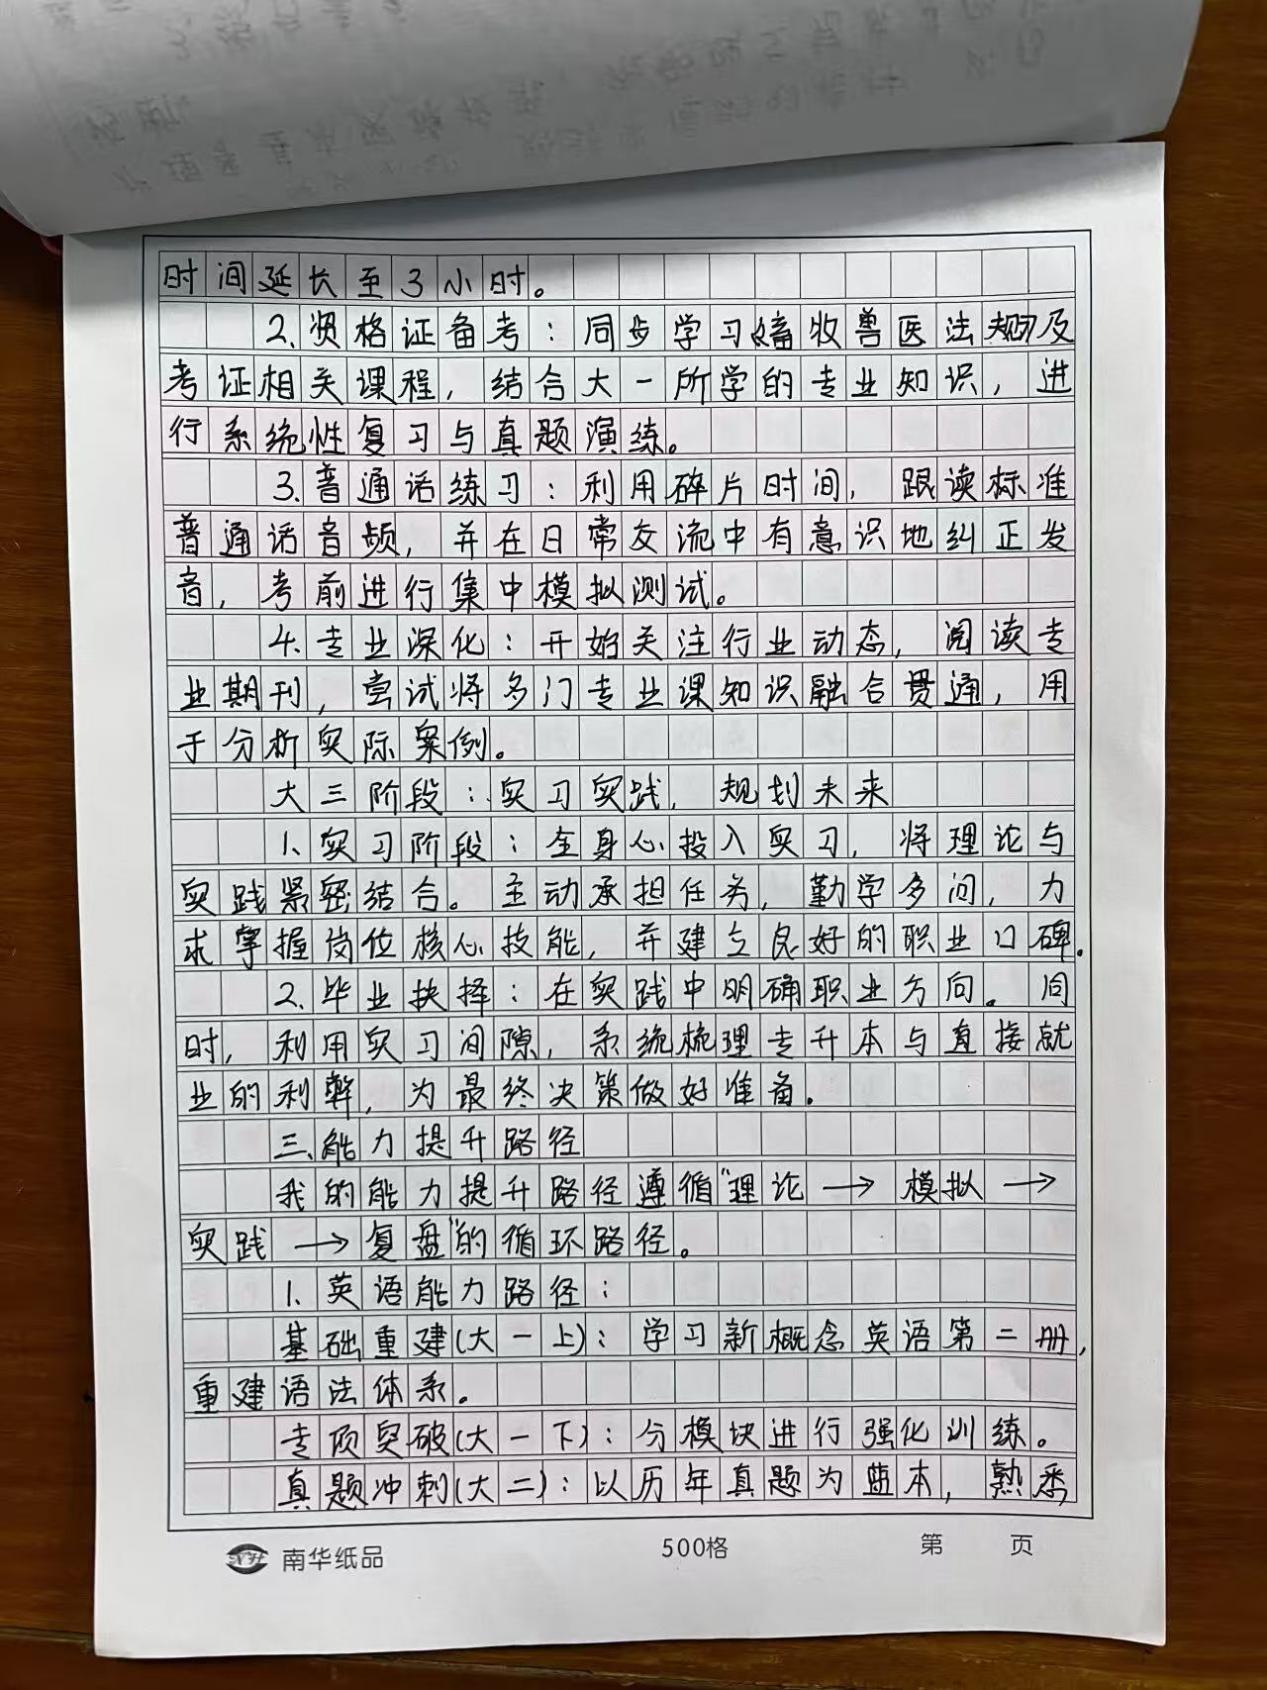 时间延长至3小时。
2、资格证备考：同步学习畜牧兽医法规及
考证相关课程，结合大一所学的专业知识，进
行系统性复习与真题演练。
3、普通话练习：利用碎片时间，跟读标准
普通话音频，并在日常交流中有意识地纠正发
音，考前进行集中模拟测试。
4、专业深化：开始关注行业动态，阅读专
业期刊，尝试将多门专业课知识融合贯通，用
于分析实际案例。
大三阶段：实习实践，规划未来
1、实习阶段：全身心投入实习，将理论与
实践紧密结合。主动承担任务，勤学多问，力
求掌握岗位核心技能，并建立良好的职业口碑。
2、毕业抉择：在实践中明确职业方向。同
时，利用实习间隙，系统梳理专升本与直接就
业的利弊，为最终决策做好准备。
三、能力提升路径
我的能力提升路径遵循"理论→模拟→
实践→复盘"的循环路径。
1、英语能力路径：
基础重建(大一上)：学习新概念英语第二册，
重建语法体系。
专项突破(大一下)：分模块进行强化训练。
真题冲刺(大二)：以历年真题为蓝本，熟悉
南华纸品 500格 第 页